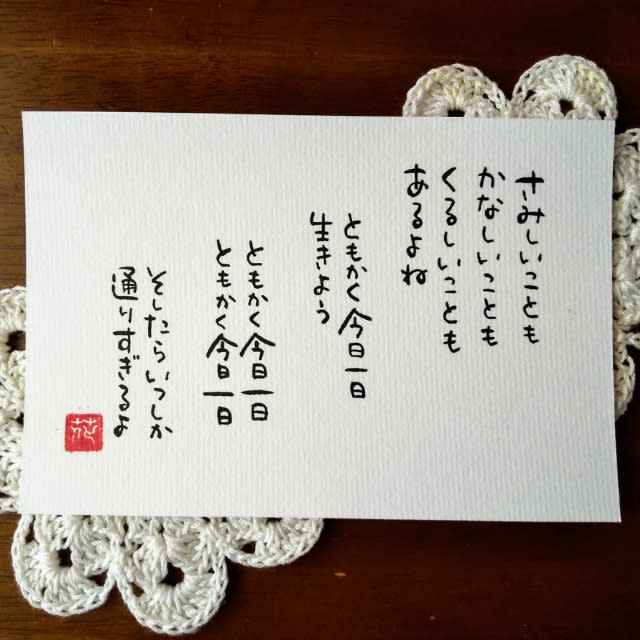 さみしいことも
かなしいことも
くるしいことも
あるよね
ともかく今日一日
生きよう
ともかく今日一日
ともかく今日一日
そしたらいつしか
通りすぎるよ